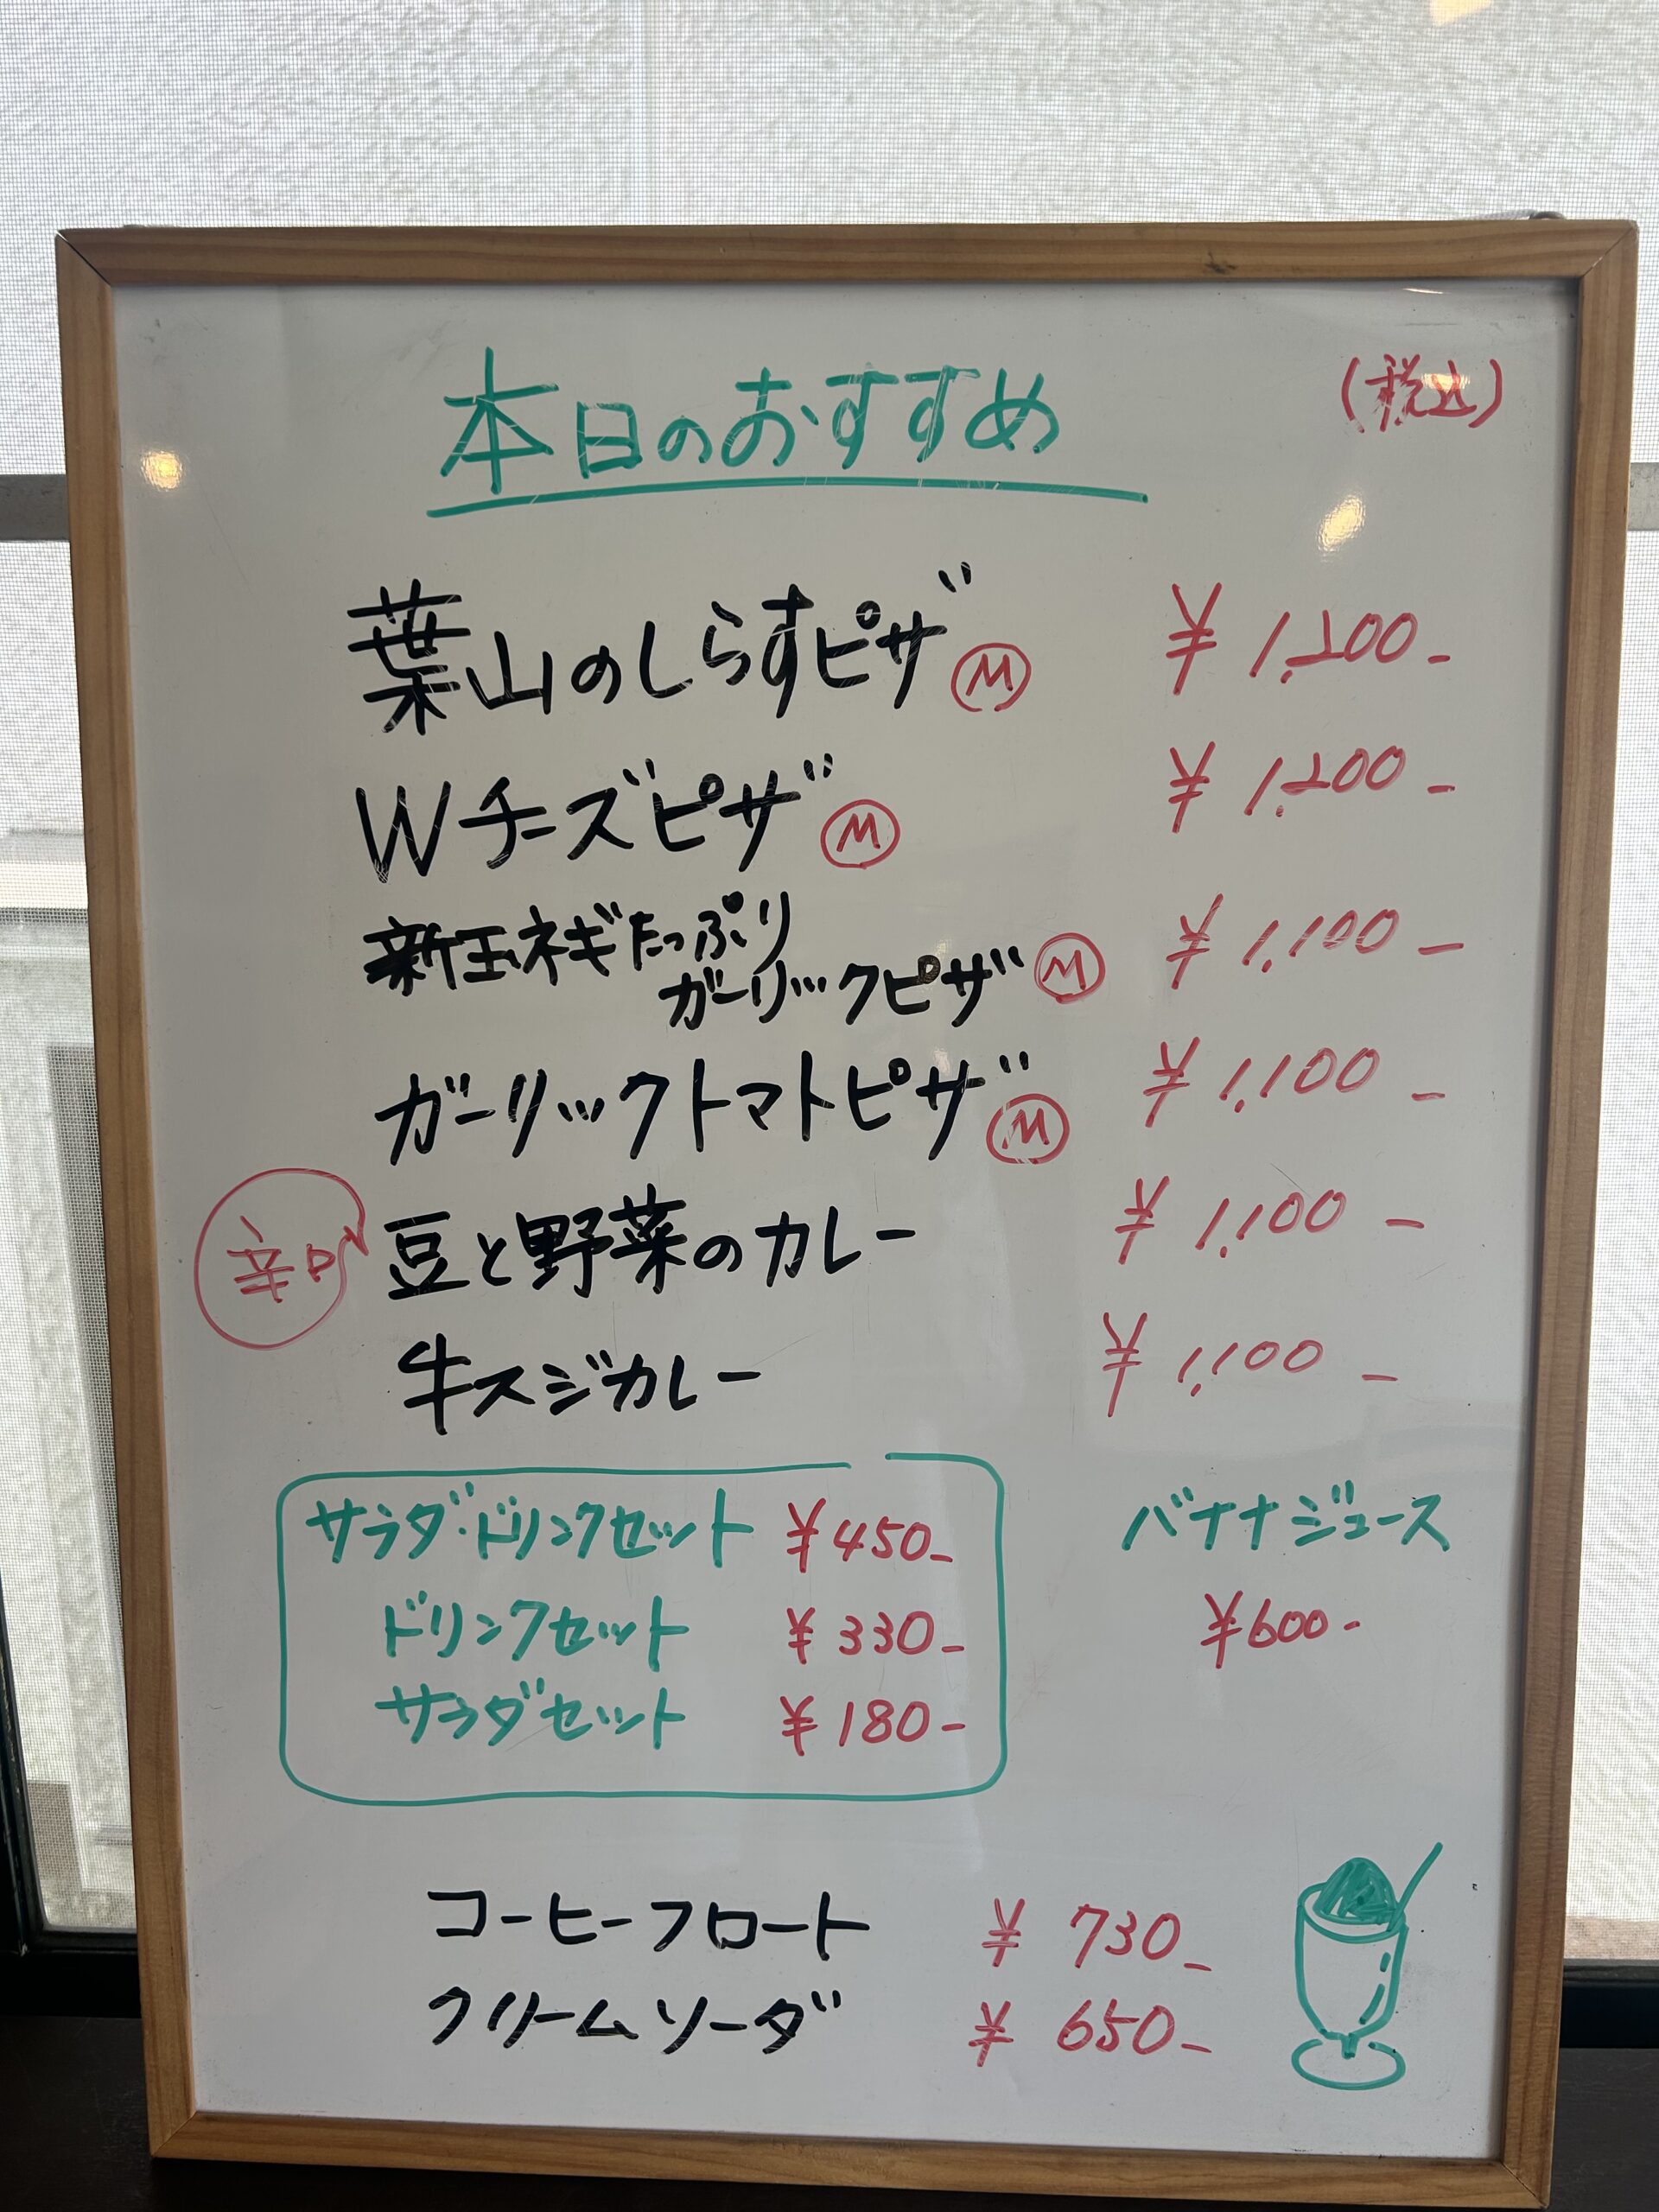 本日のおすすめ (税込)
葉山のしらすピザ Ⓜ ¥1,200-
Wチーズピザ Ⓜ ¥1,200-
新玉ネギたっぷり
ガーリックピザ Ⓜ ¥1,100-
ガーリックトマトピザ Ⓜ ¥1,100-
辛口 豆と野菜のカレー ¥1,100-
牛スジカレー ¥1,100-
サラダ・ドリンクセット ¥450-
ドリンクセット ¥330-
サラダセット ¥180-
バナナジュース
¥600-
コーヒーフロート ¥730-
クリームソーダ ¥650-